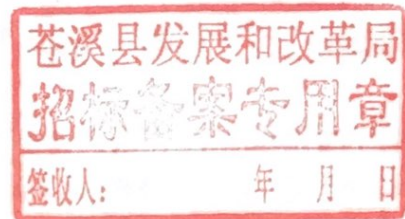 苍溪县发展和改革局
招标备案专用章
签收人: 年 月 日